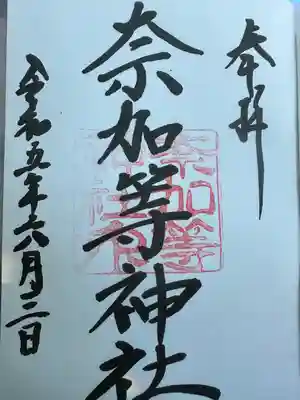 奉拝
奈加等神社
令和五年六月三日
奈加等